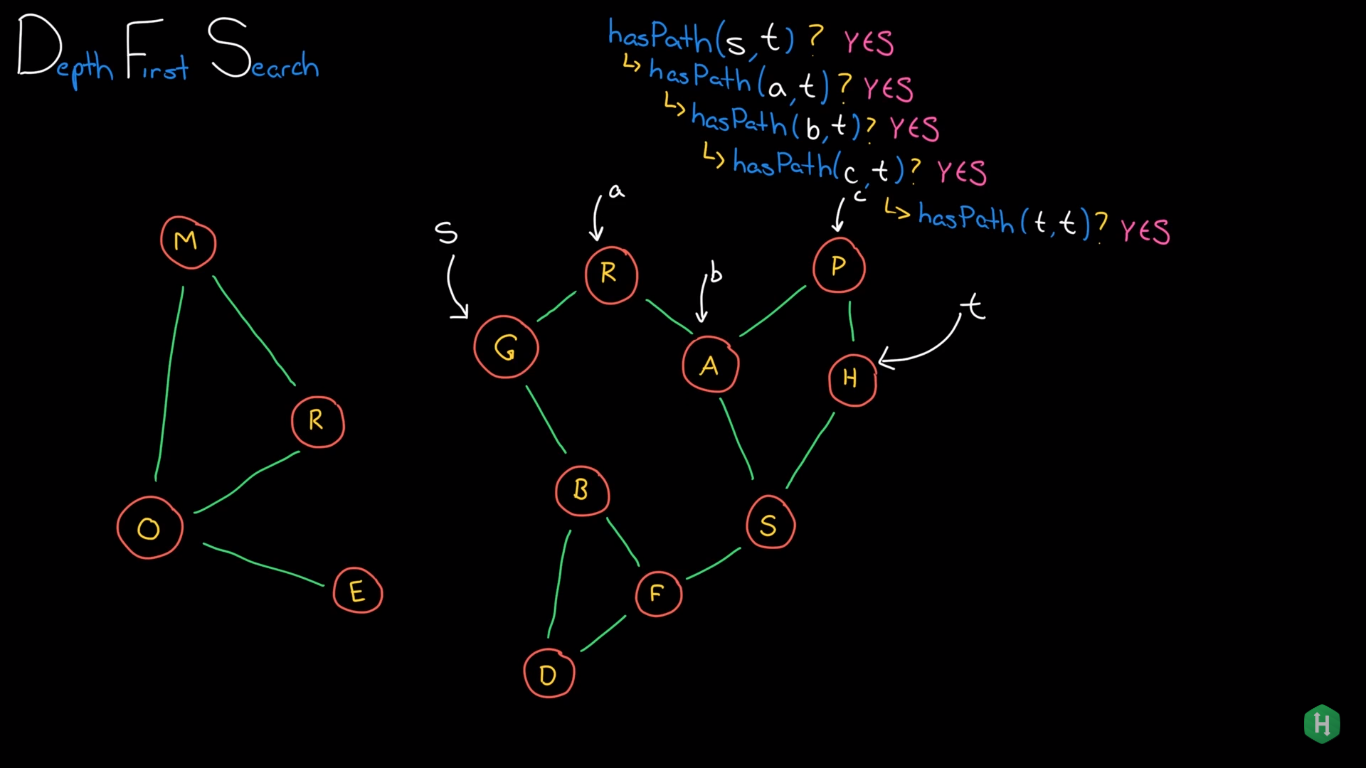 Depth First Search
hasPath(s,t)? YES
↳hasPath(a,t)? YES
↳hasPath(b,t)? YES
↳hasPath(c,t)? YES
↳hasPath(t,t)? YES
a
c
s
M
R
P
b
t
G
A
H
R
B
S
O
E
F
D
H